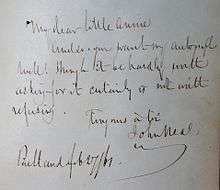 My dear little Annie
Under you want my autograph
well! though it be hardly worth
asking for it certainly is not worth
refusing.
Toujours à toi
John Neal
Portland Feb 27/61